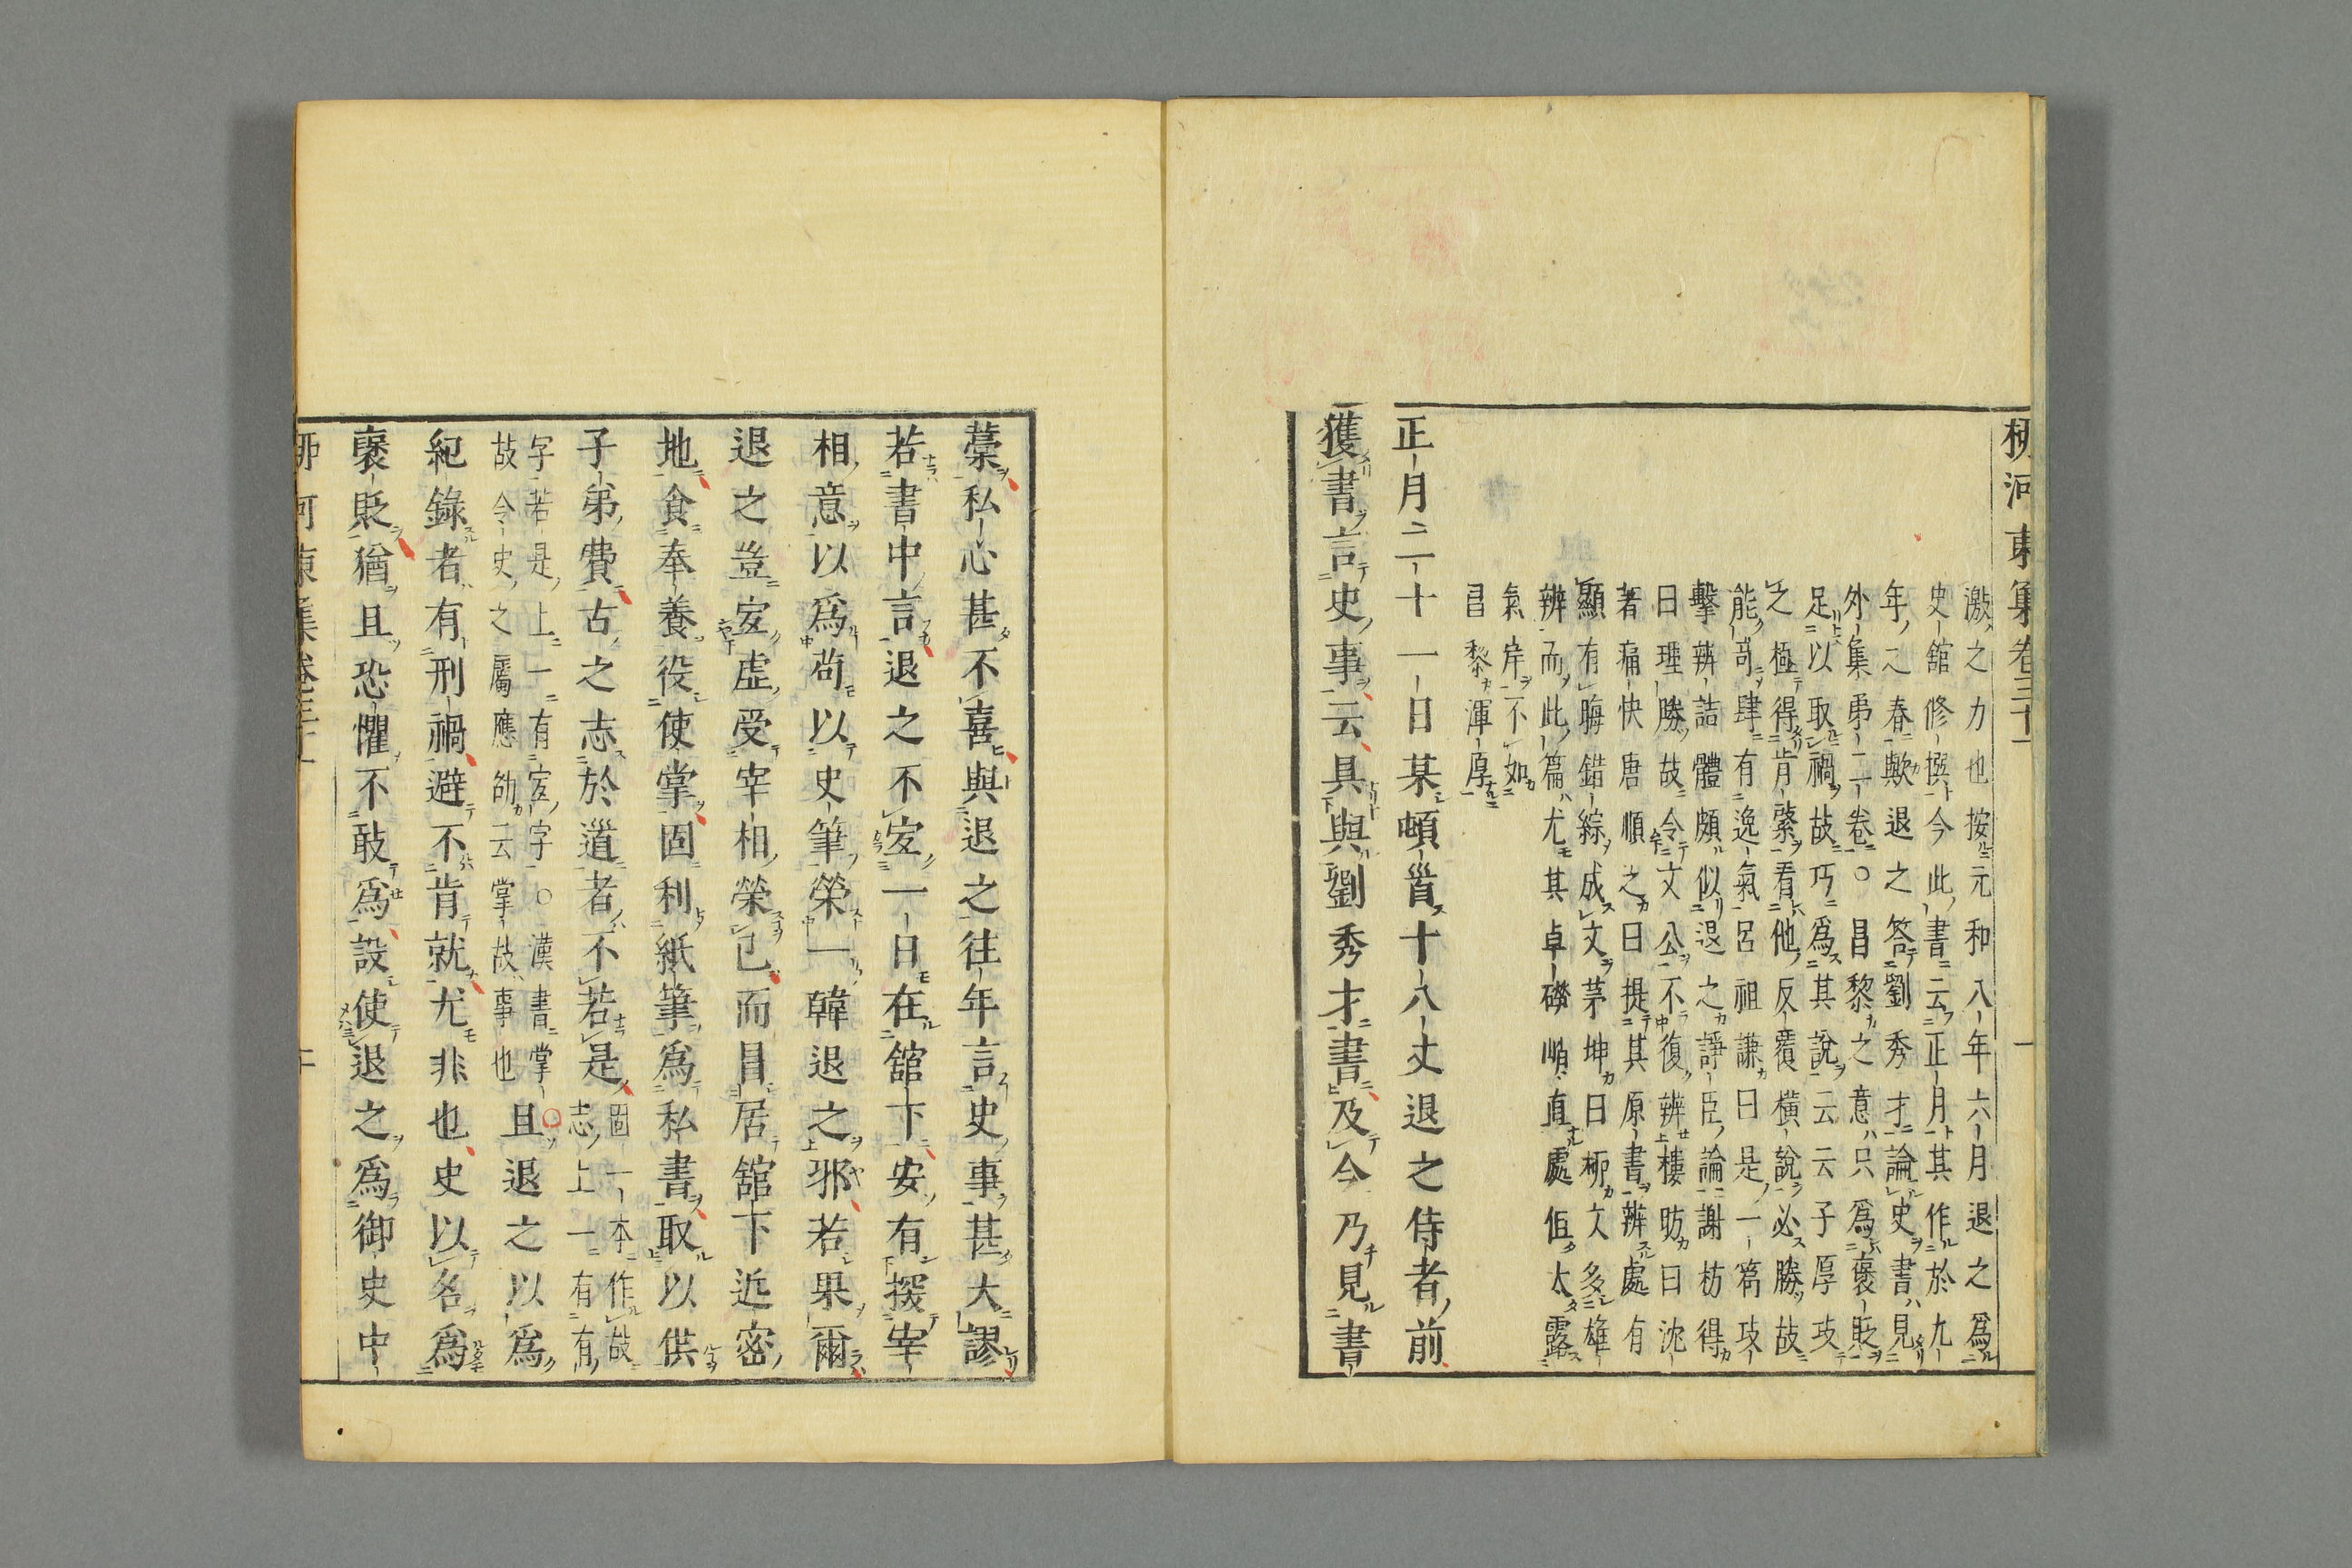 柳河東集卷三十一 一
激之力也按元和八年六月退之爲
史舘修撰今此書云正月其作於九
年之春歟退之答劉秀才論史書見
外集弟二卷○昌黎之意只爲褒貶
足以取禍故巧爲其說云云子厚攻
之極得肯綮看他反覆橫說必勝故
能奇肆有逸氣呂祖謙曰是一篇攻
擊辨詰體頗似退之諍臣論謝枋得
曰理勝故令文公不復辨樓昉曰沈
著痛快唐順之曰提其原書辨處有
顯有晦錯綜成文茅坤曰柳文多雄
辨而此篇尤其卓礫峭直處但太露
氣岸不如
昌黎渾厚
正月二十一日某頓首十八丈退之侍者前
獲書言史事云具與劉秀才書及今乃見書
藁私心甚不喜與退之往年言史事甚大謬
若書中言退之不宐一日在舘下安有探宰
相意以爲苟以史筆榮一韓退之邪若果爾
退之豈宐虛受宰相榮已而冒居舘下近密
地食奉養役使掌固利紙筆爲私書取以供
子弟費古之志於道者不若是
固一本作故
志上一有有
字若是上一有宐字○漢書掌
故令史之屬應劭云掌故事也
且退之以爲
紀錄者有刑禍避不肯就尤非也史以名爲
褒貶猶且恐懼不敢爲設使退之爲御史中
柳河東集卷三十一 二